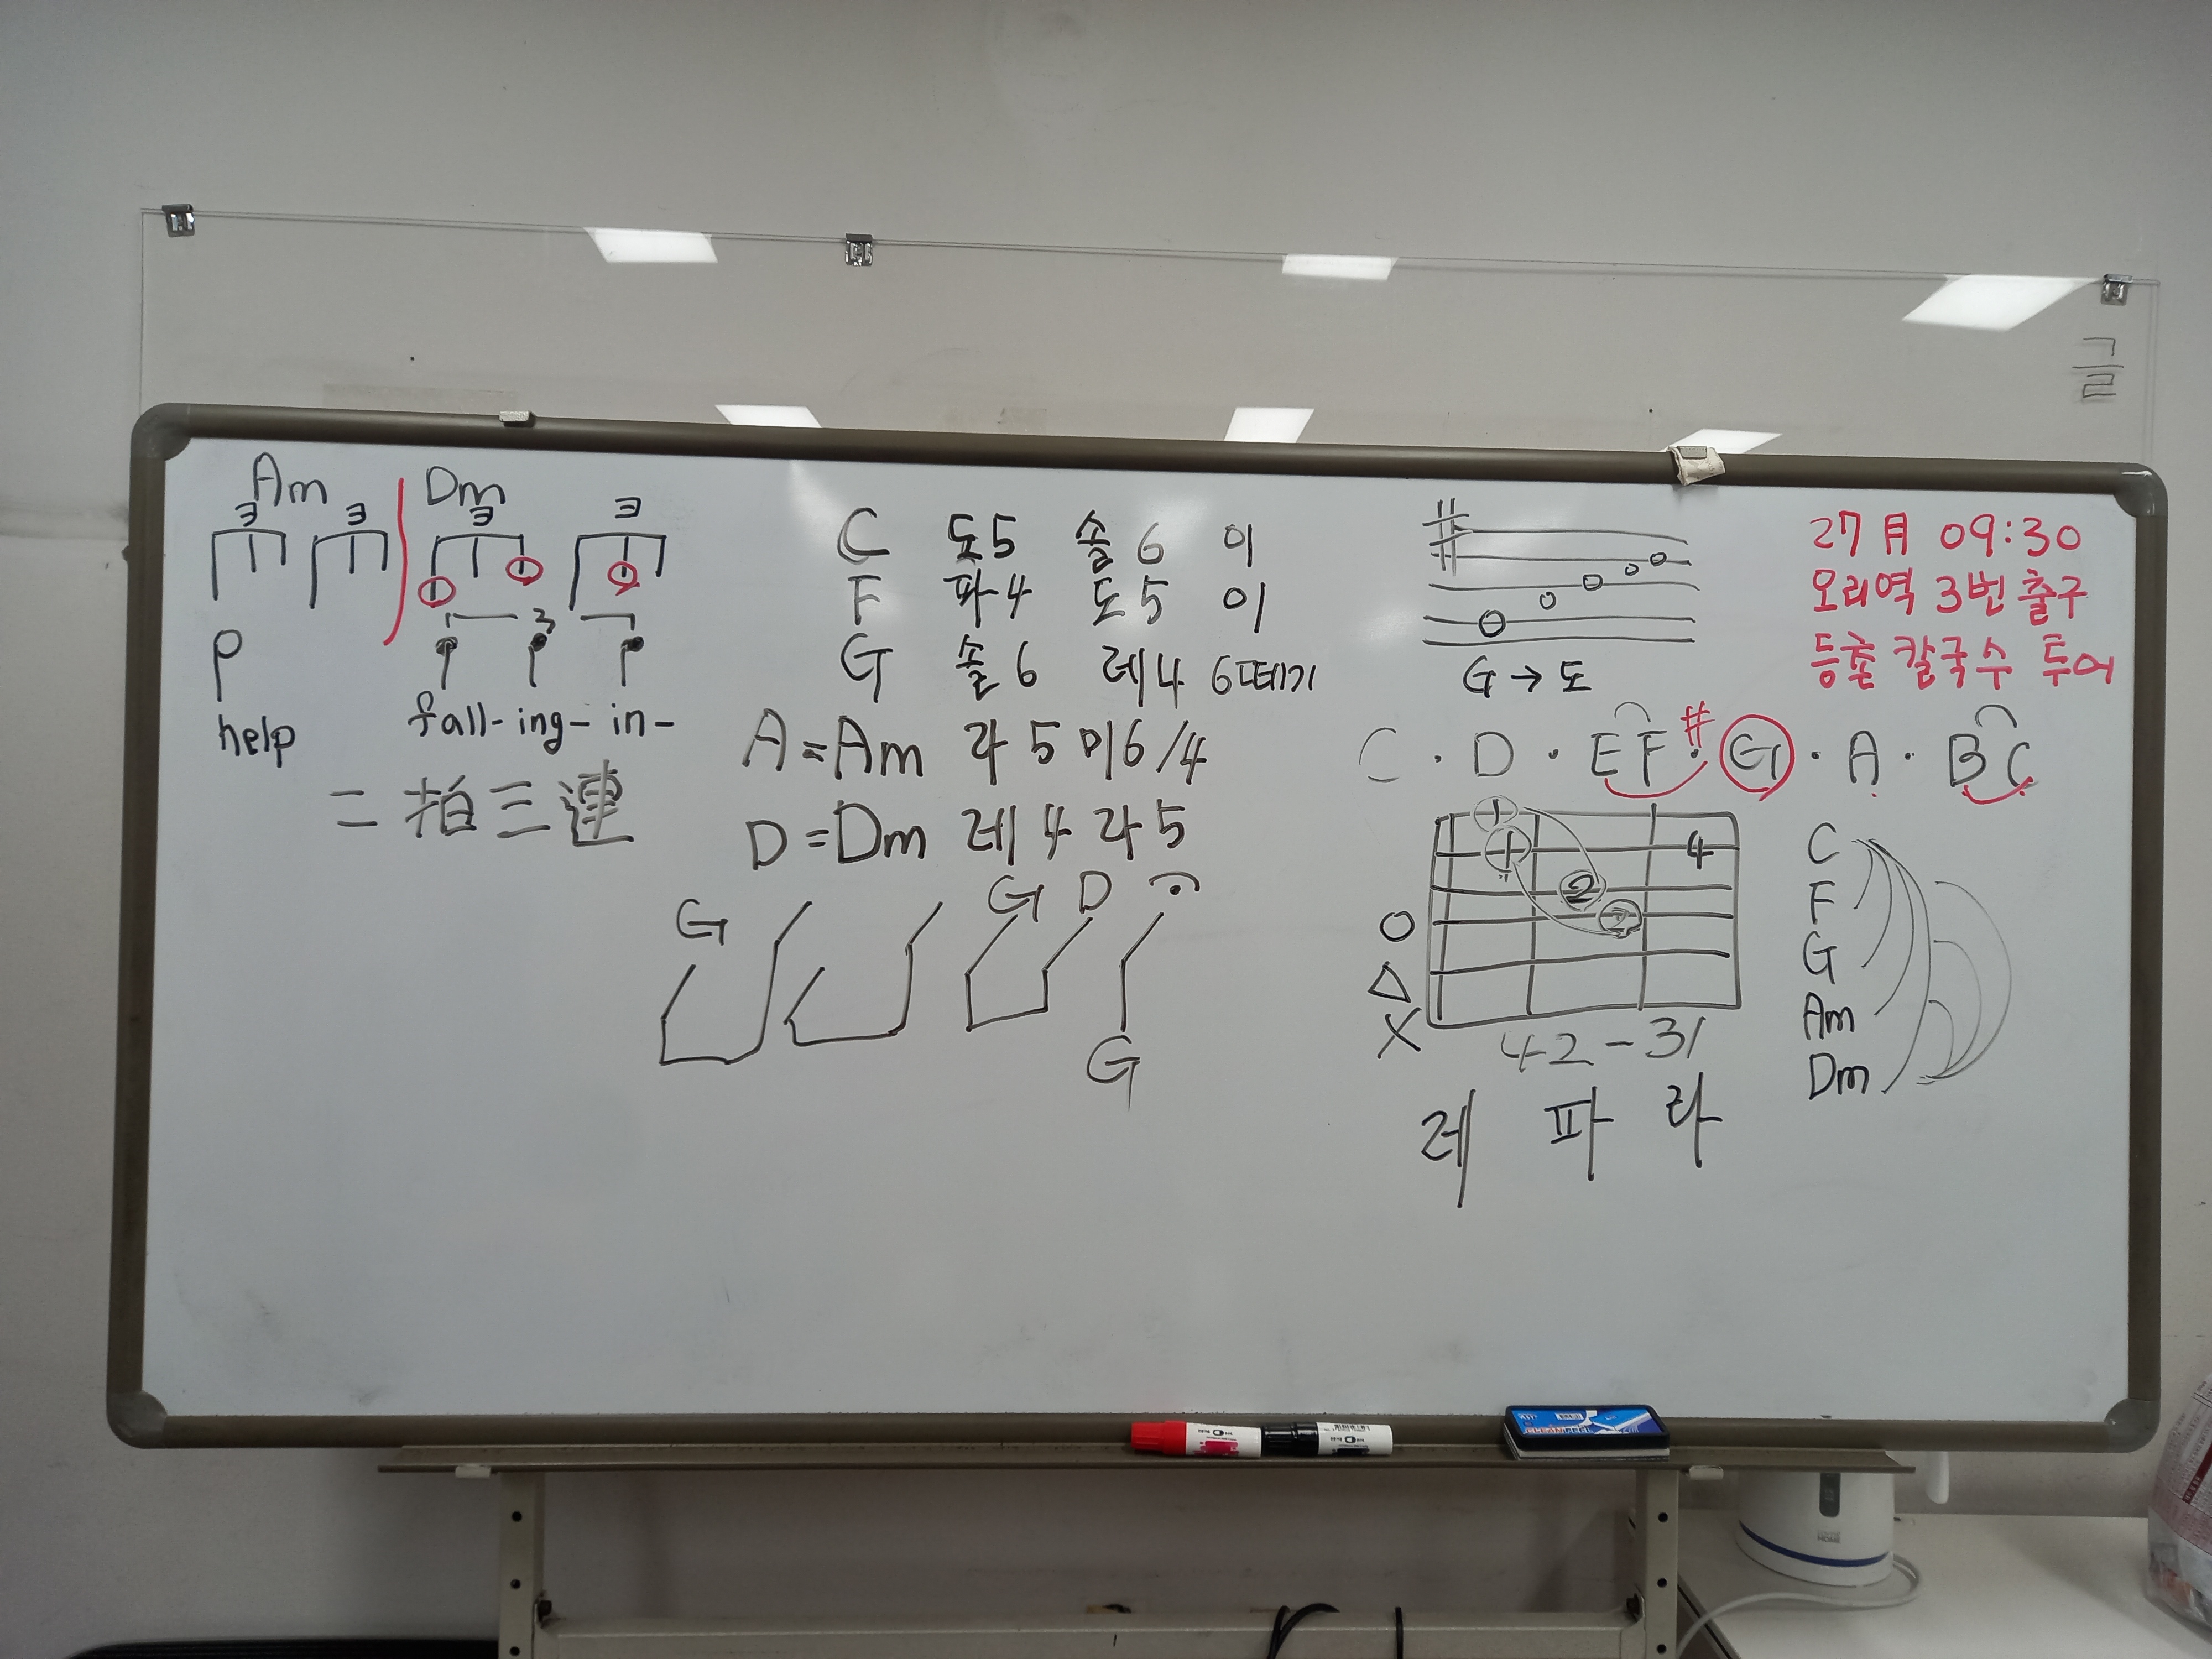 글
Am Dm
3 3 3 3
3
help fall-ing-in-
二拍三連
C 도5 솔6 이
F 파4 도5 이
G 솔6 레4 6떼기
A=Am 라5 미6/4
D=Dm 레4 라5
G G D
G
#
G→도
27月 09:30
오리역 3번 출구
등촌 칼국수 투어
C·D·EF#·G·A·BC
1
1 4
2
3
○
△
X
42-31
레 파 라
C
F
G
Am
Dm
CLEAN
HOME